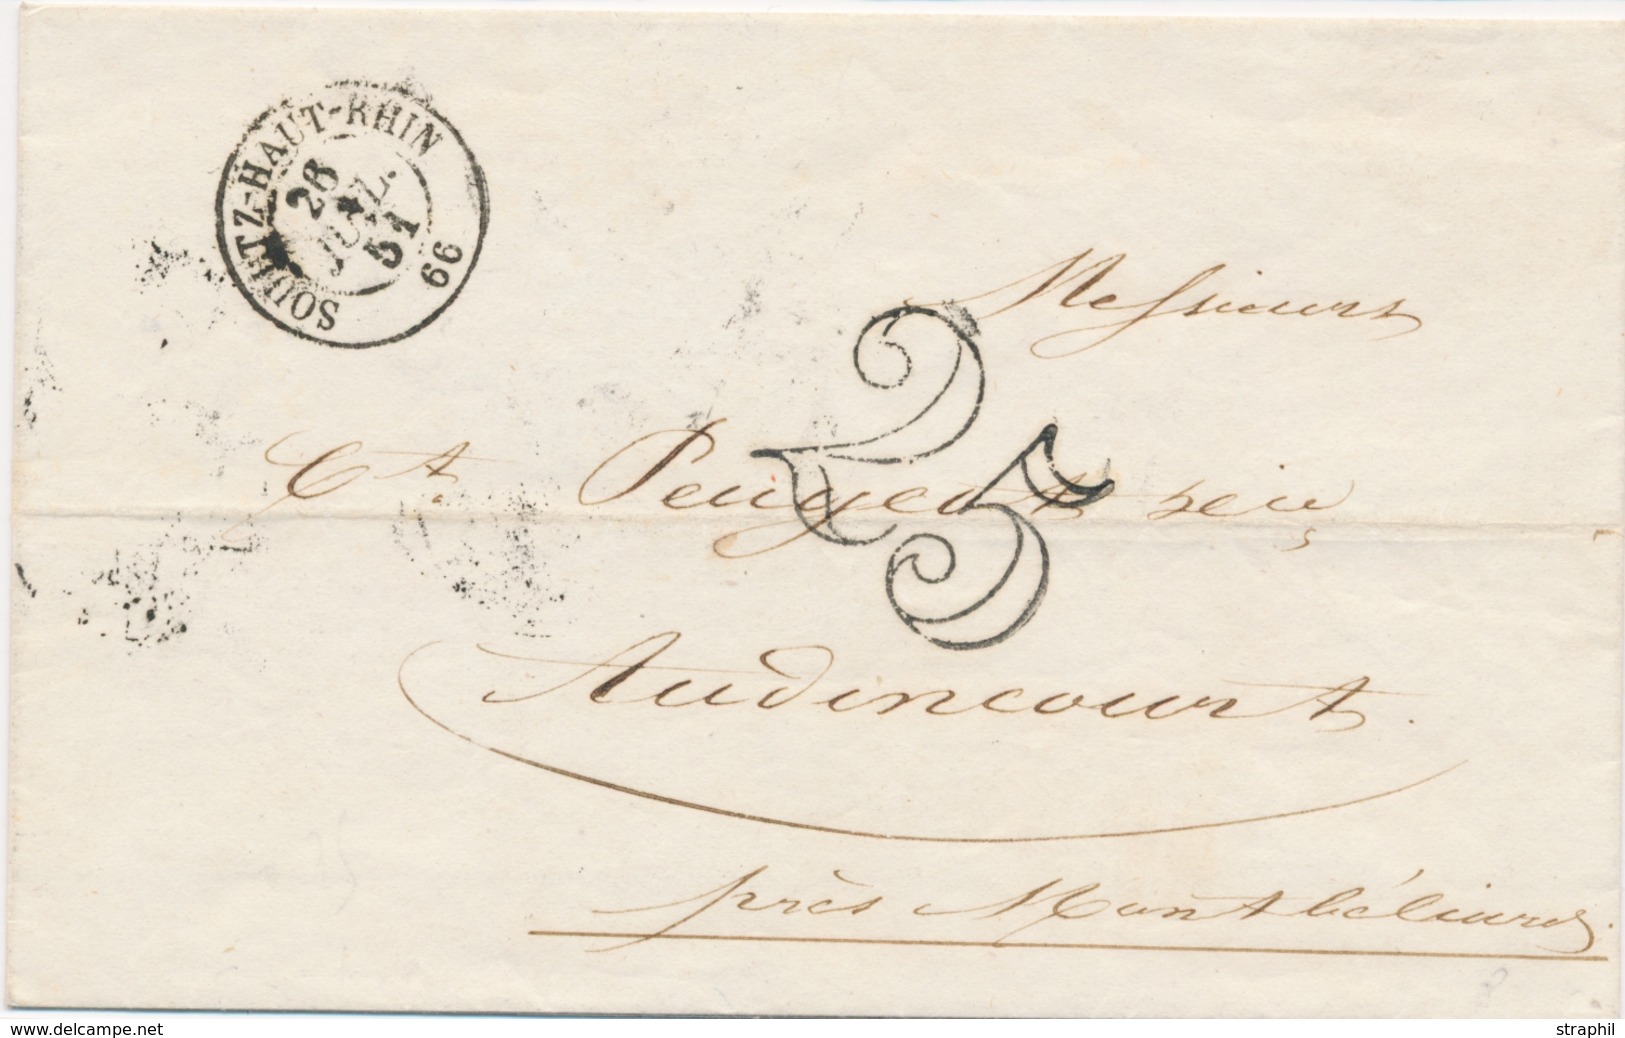 SOULTZ-HAUT-RHIN
28
JUIL.
51
66
Messieurs
25
Ct. Peugeot
Audincourt.
près Montbéliard.
www.delcampe.net
straphil